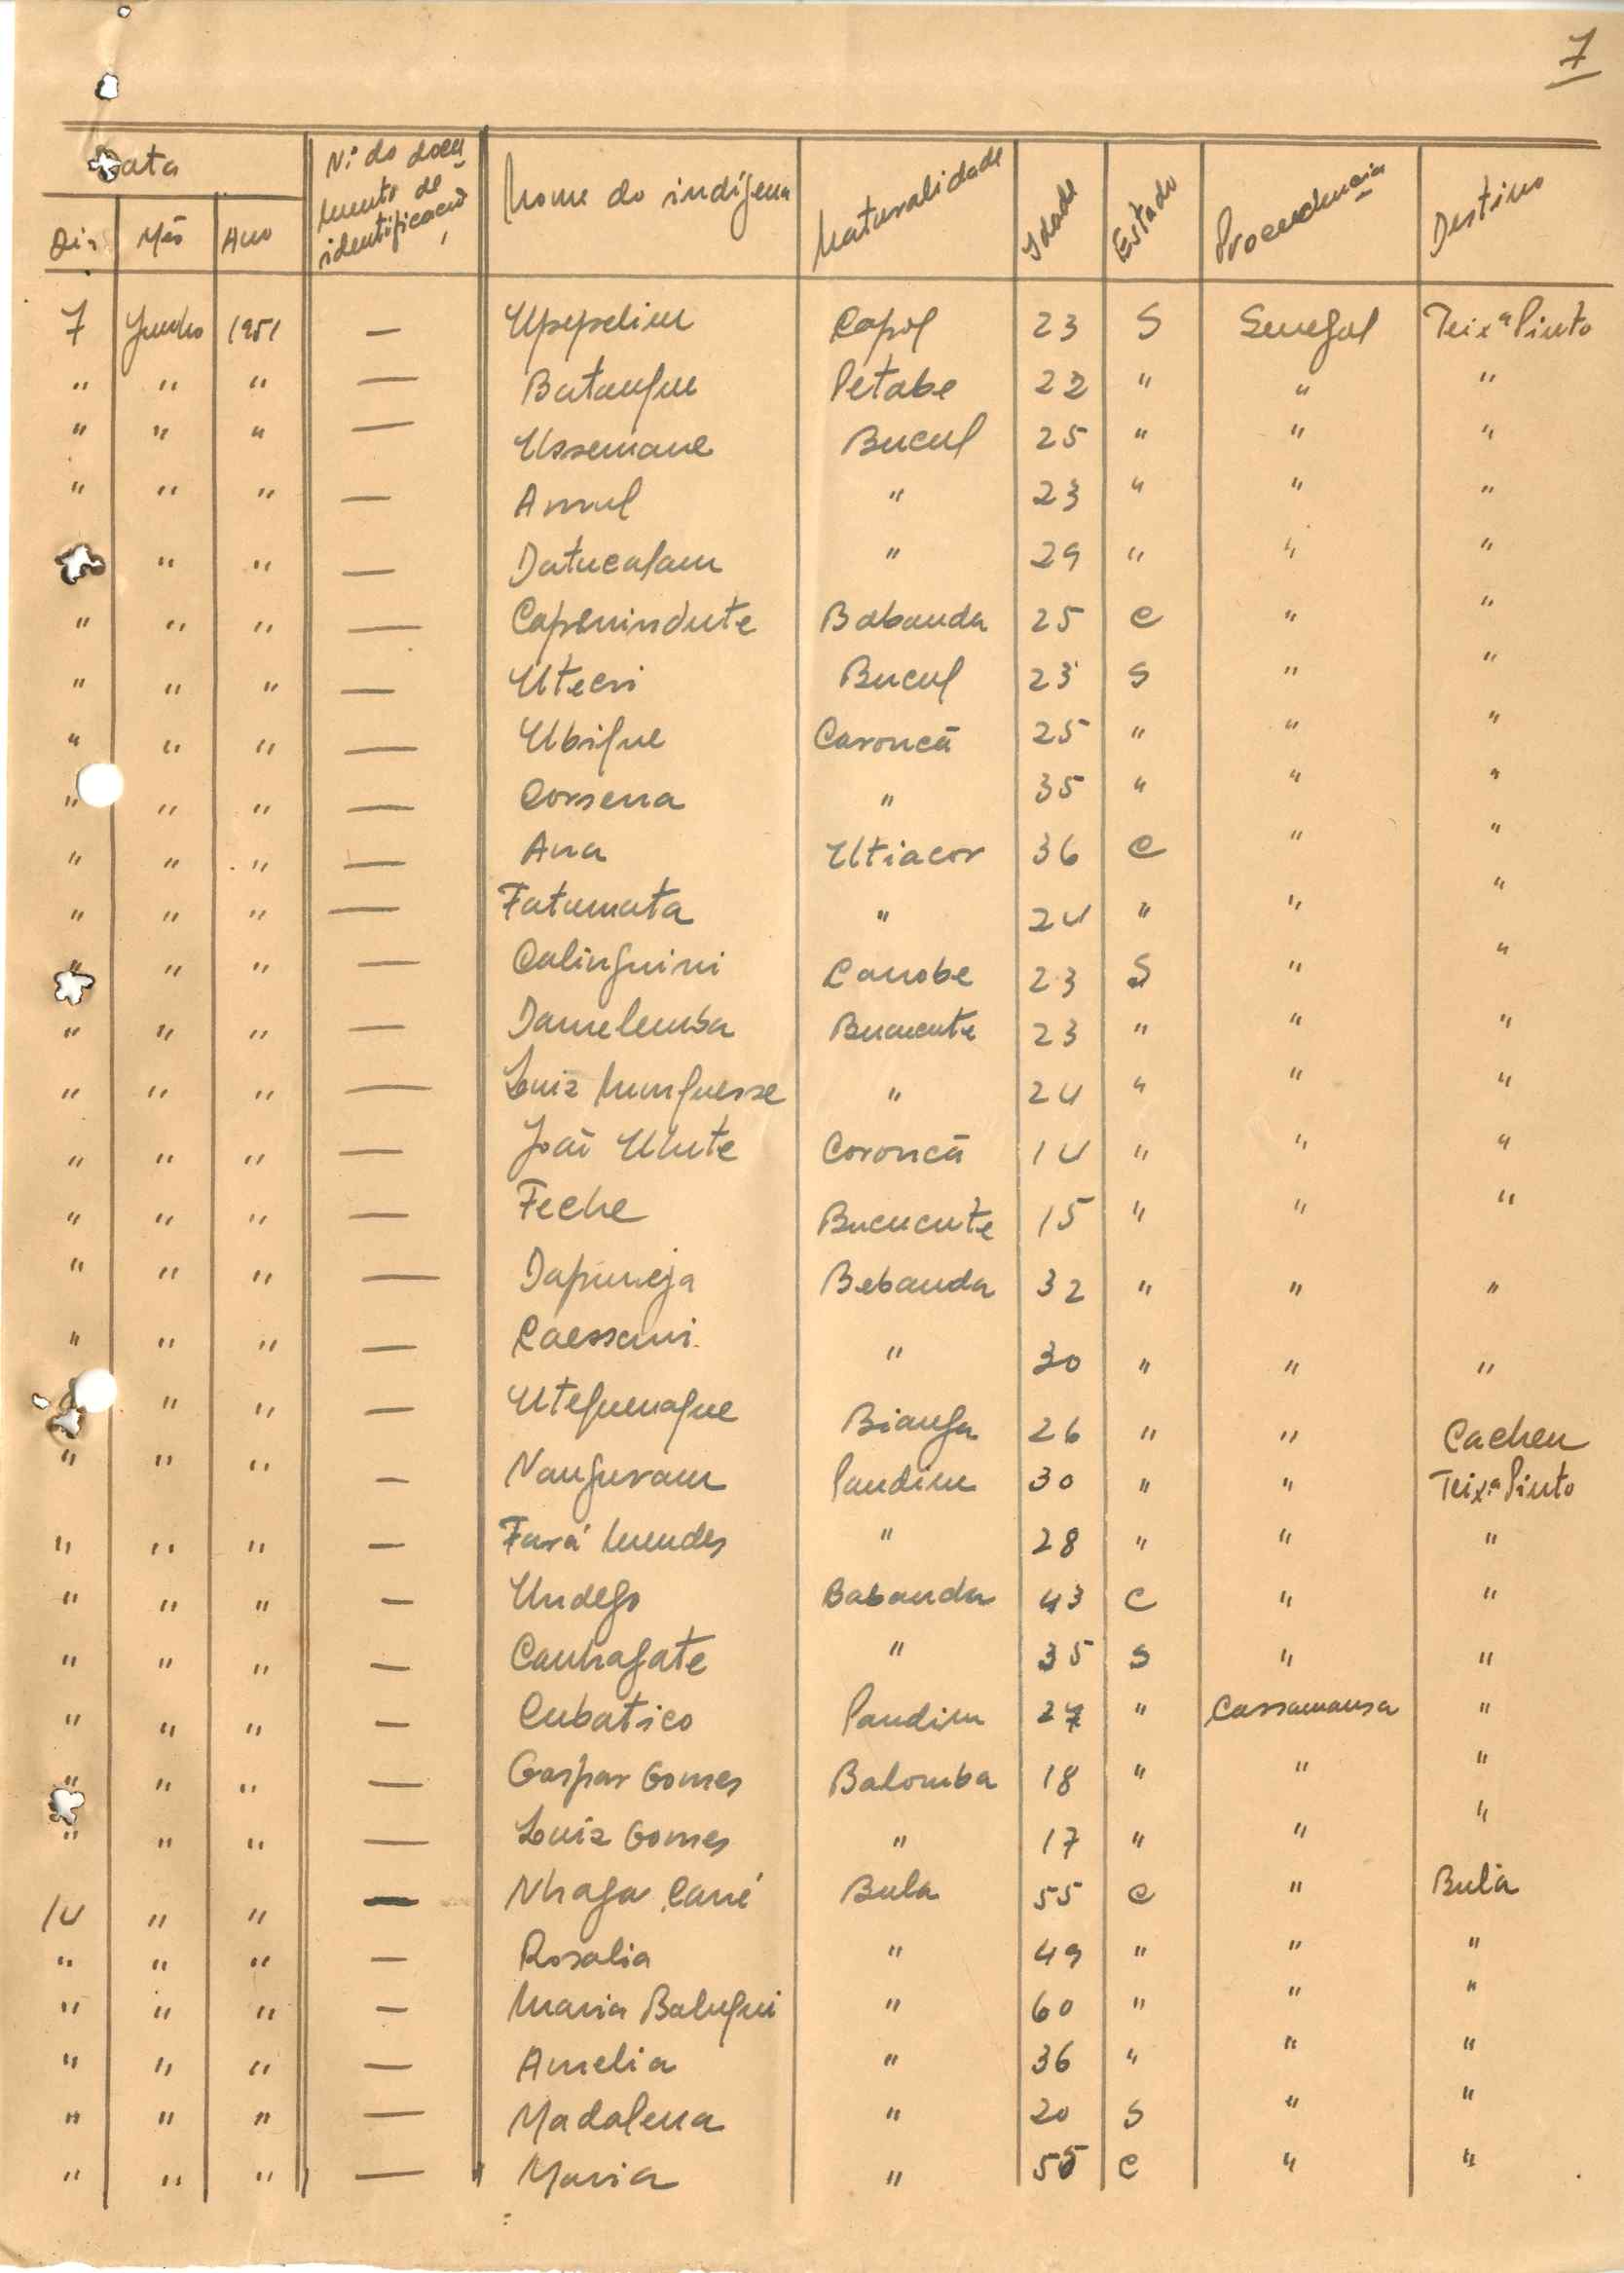 7
Data
Nº do docu
mento de
identificação
Nome do indígena
Naturalidade
Idade
Estado
Procedencia
Destino
Dia Mês Ano
7 Junho 1951 — Upepelim Capol 23 S Senegal Teixª Pinto
" " " — Batangue Petabe 22 " " "
" " " — Ussemane Bucul 25 " " "
" " " — Amul " 23 " " "
" " — Datucalam " 29 " " "
" " " — Capenindute Babanda 25 C " "
" " " — Utecri Bucul 23 S " "
" " " — Ubigue Caroncã 25 " " "
" " " — Corsena " 35 " " "
" " " — Ana Utiacor 36 C " "
" " " — Fatumata " 24 " " "
" " " — Calinguini Canobe 23 S " "
" " " — Damelemba Bucucute 23 " " "
" " " — Luiz Munguesse " 24 " " "
" " " — João Ulute Coroncã 14 " " "
" " " — Feche Bucucute 15 " " "
" " " — Dapuneja Bebanda 32 " " "
" " " — Caessami " 30 " " "
" " — Uteguenague Bianga 26 " " Cacheu
" " " — Nanguram Pandim 30 " " Teixª Pinto
" " " — Fará Mendes " 28 " " "
" " " — Undego Babanda 43 C " "
" " " — Canhagate " 35 S " "
" " " — Cubatico Pandim 27 " Cassamansa "
" " " — Gaspar Gomes Balomba 18 " " "
" " " — Luiz Gomes " 17 " " "
14 " " — Nhaga Cané Bula 55 C " Bula
" " " — Rosalia " 49 " " "
" " " — Maria Balugui " 60 " " "
" " " — Amelia " 36 " " "
" " " — Madalena " 20 S " "
" " " — Maria " 55 C " "